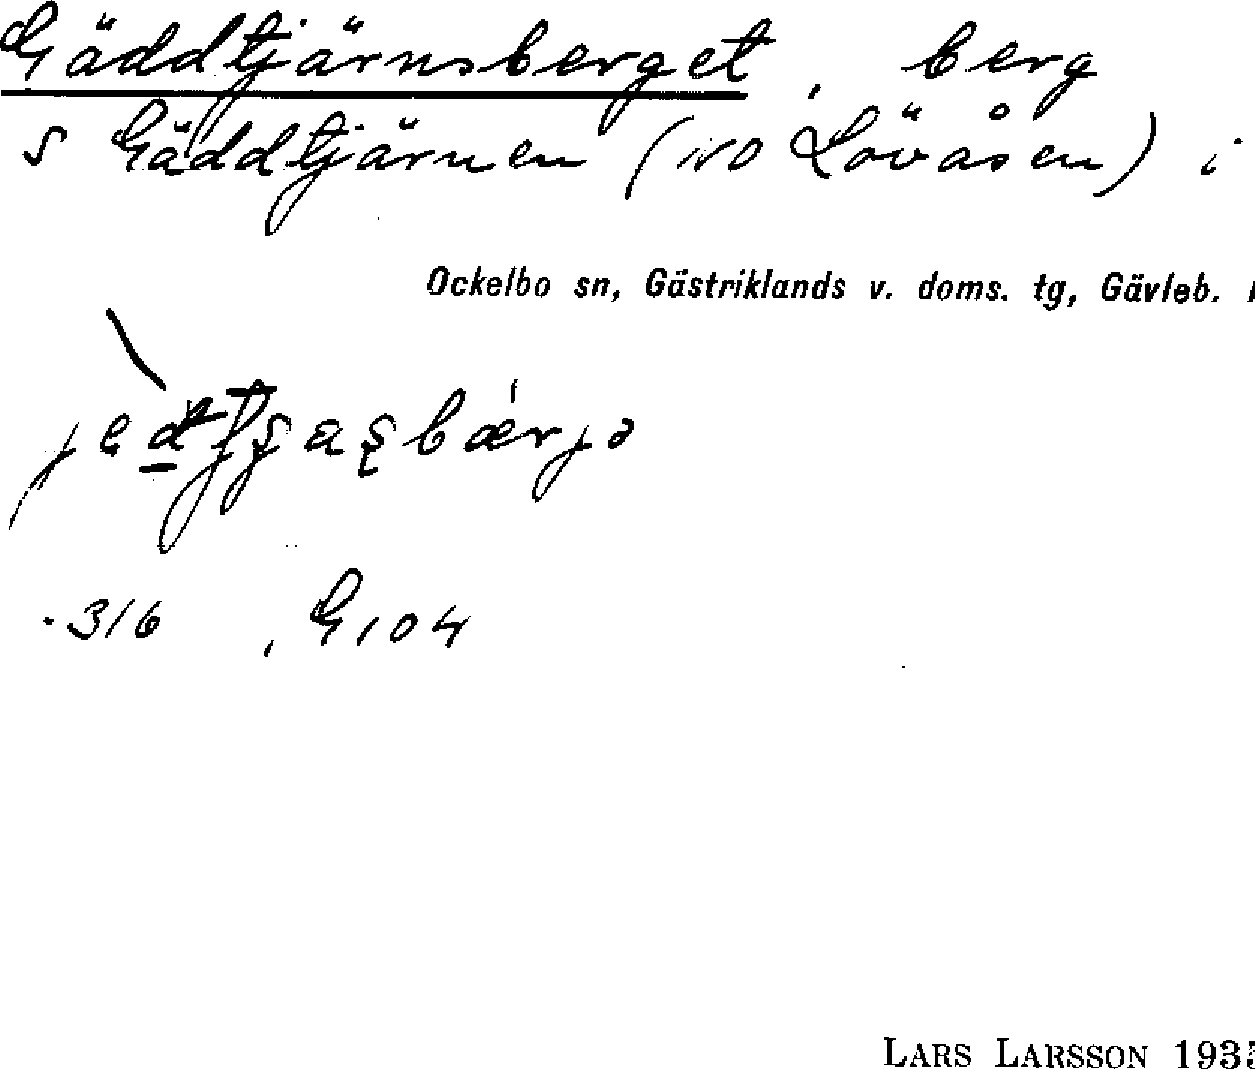 Gäddtjärnsberget, berg
S Gäddtjärnen (NO Lövåsen) i
Ockelbo sn, Gästriklands v. doms. tg, Gävleb.
316, G104
LARS LARSSON 1935